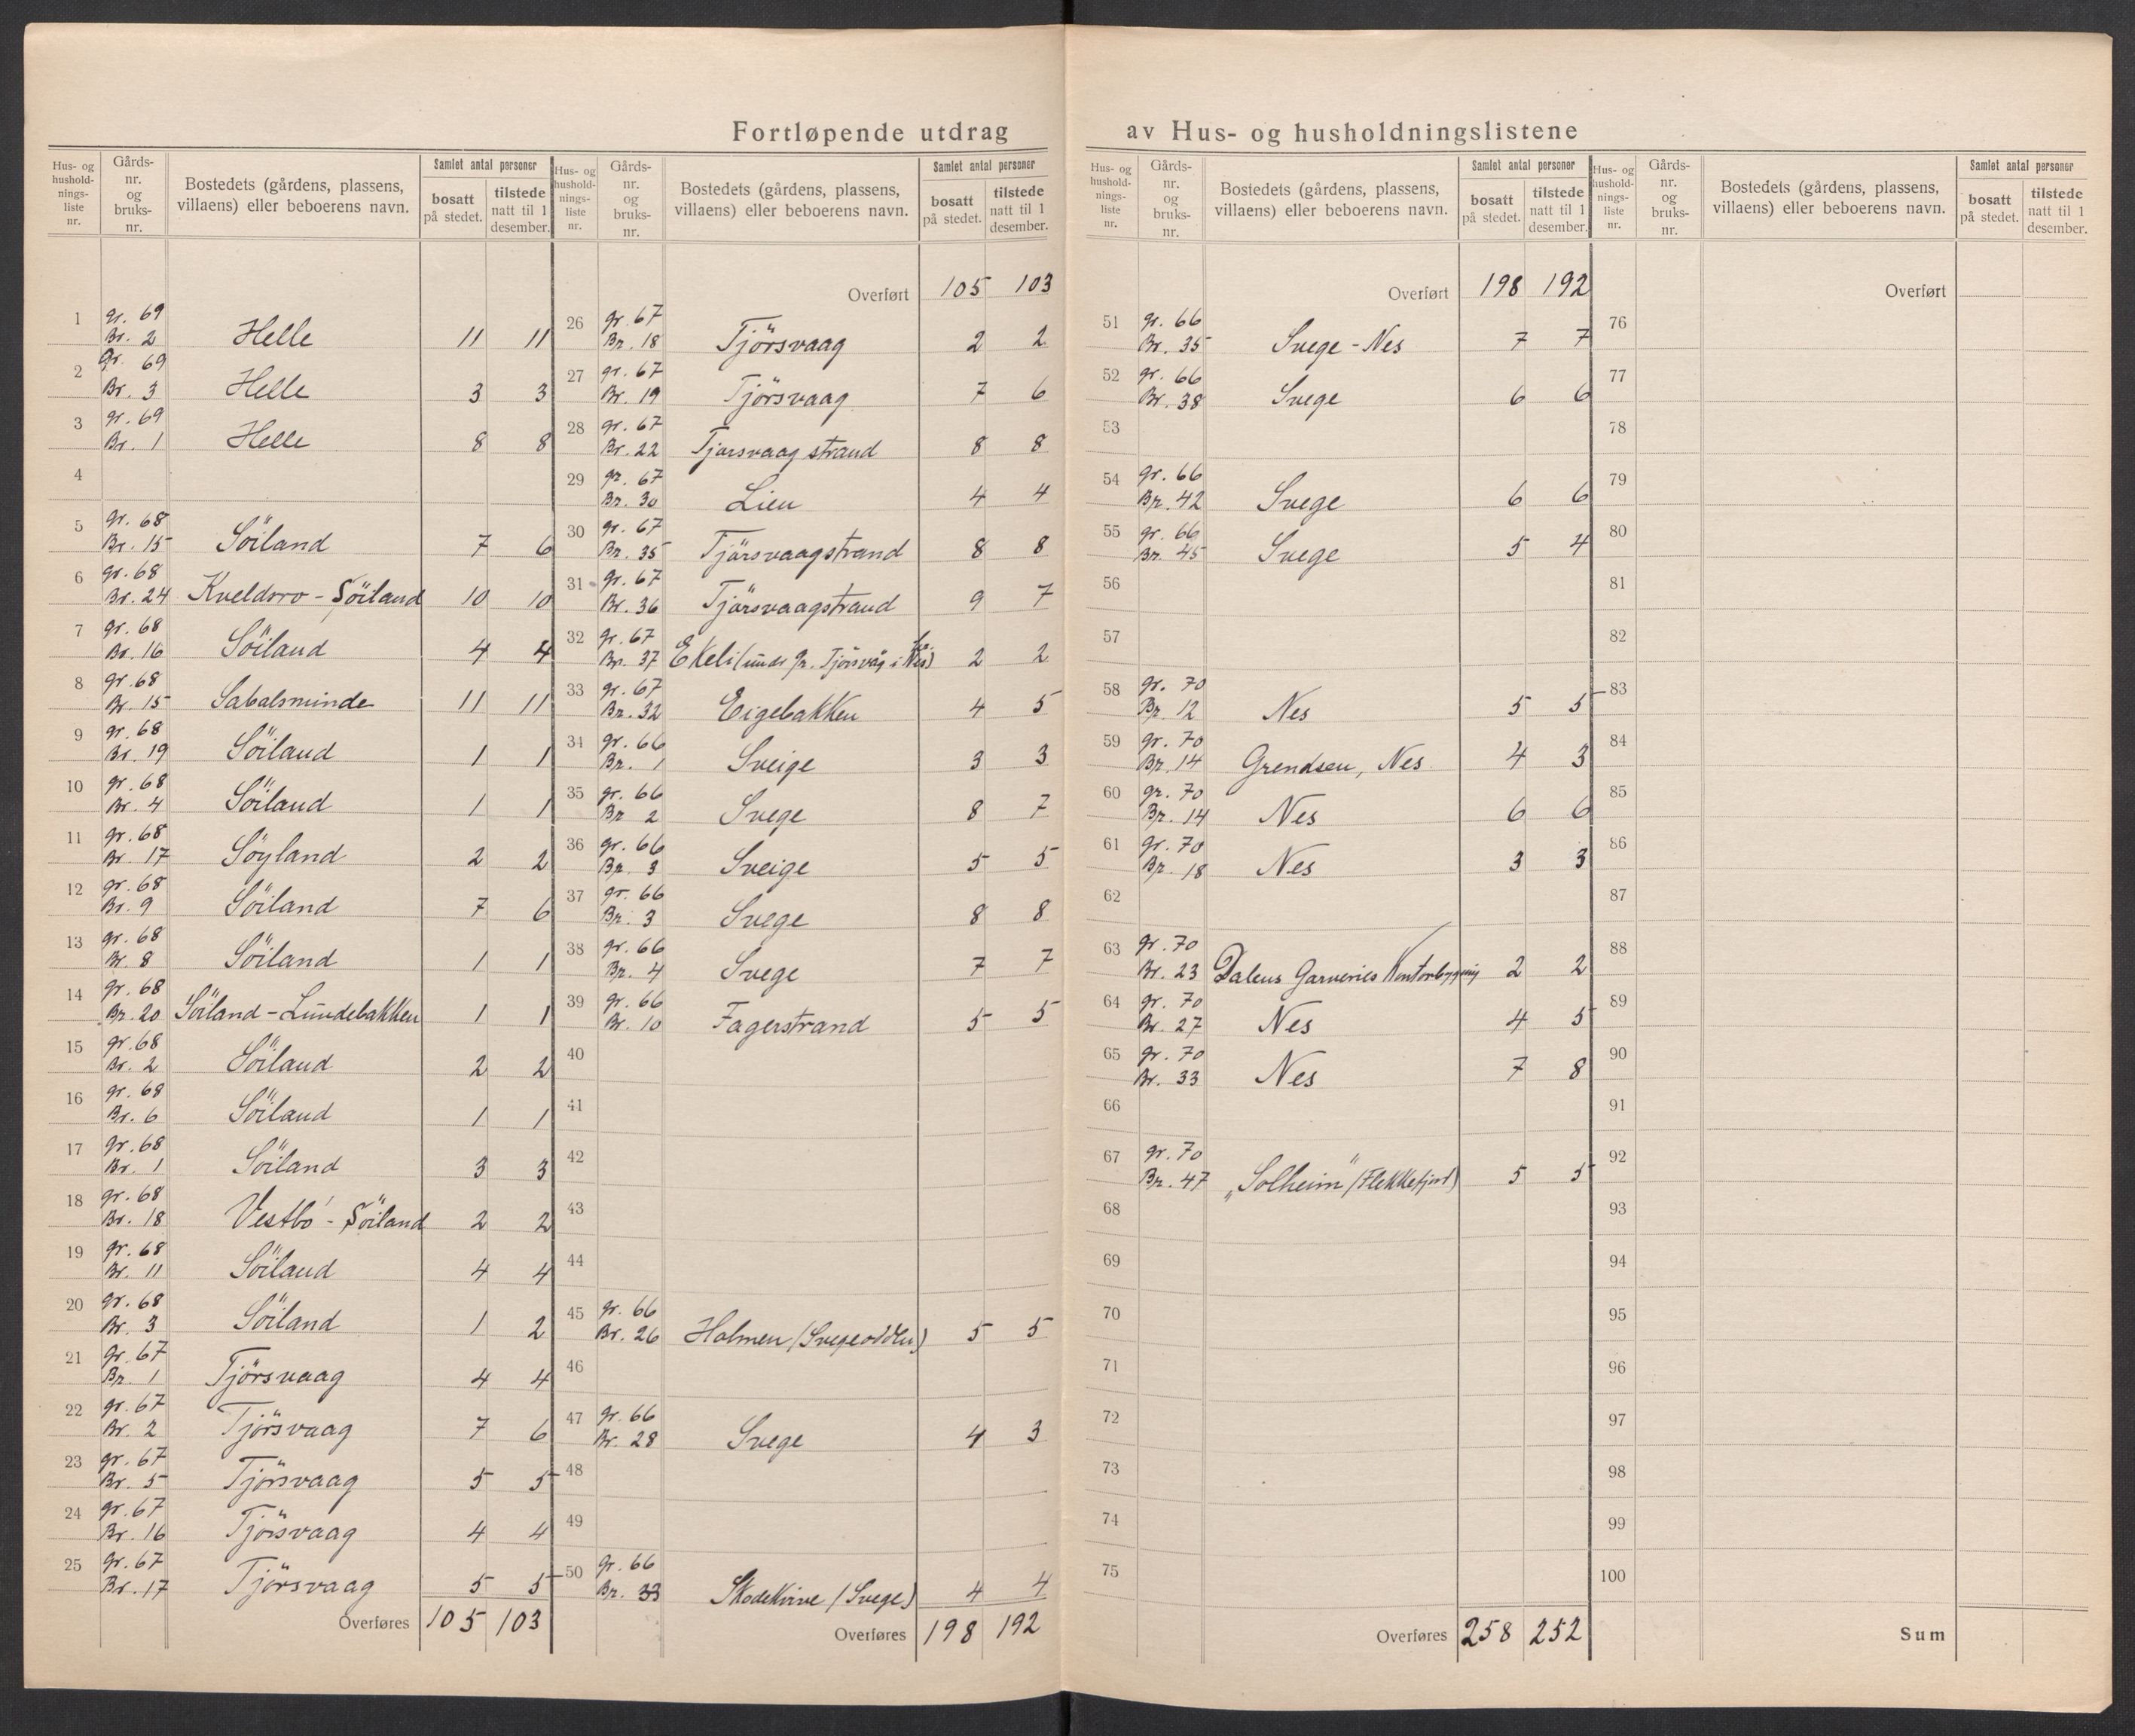 Fortløpende utdrag av Hus- og husholdningslistene
Hus- og husholdnings-liste nr. | Gårds-nr. og bruks-nr. | Bostedets (gårdens, plassens, villaens) eller beboerens navn. | Samlet antal personer | bosatt på stedet. | tilstede natt til 1 desember.
1 gr. 69 Br. 2 Helle 11 11
2 gr. 69 Br. 3 Helle 3 3
3 gr. 69 Br. 1 Helle 8 8
4
5 gr. 68 Br. 15 Söiland 7 6
6 gr. 68 Br. 24 Kveldsro - Söiland 10 10
7 gr. 68 Br. 16 Söiland 4 4
8 gr. 68 Br. 15 Sabalsminde 11 11
9 gr. 68 Br. 19 Söiland 1 1
10 gr. 68 Br. 4 Söiland 1 1
11 gr. 68 Br. 17 Söyland 2 2
12 gr. 68 Br. 9 Söiland 7 6
13 gr. 68 Br. 8 Söiland 1 1
14 gr. 68 Br. 20 Söiland - Lundebakken 1 1
15 gr. 68 Br. 2 Söiland 2 2
16 gr. 68 Br. 6 Söiland 1 1
17 gr. 68 Br. 1 Söiland 3 3
18 gr. 68 Br. 18 Vestbö - Söiland 2 2
19 gr. 68 Br. 11 Söiland 4 4
20 gr. 68 Br. 3 Söiland 1 2
21 gr. 67 Br. 1 Tjörsvaag 4 4
22 gr. 67 Br. 2 Tjörsvaag 7 6
23 gr. 67 Br. 5 Tjörsvaag 5 5
24 gr. 67 Br. 16 Tjörsvaag 4 4
25 gr. 67 Br. 17 Tjörsvaag 5 5
Overføres 105 103
Hus- og husholdnings-liste nr. | Gårds-nr. og bruks-nr. | Bostedets (gårdens, plassens, villaens) eller beboerens navn. | Samlet antal personer | bosatt på stedet. | tilstede natt til 1 desember.
Overført 105 103
26 gr. 67 Br. 18 Tjörsvaag 2 2
27 gr. 67 Br. 19 Tjörsvaag 7 6
28 gr. 67 Br. 22 Tjorsvaag strand 8 8
29 gr. 67 Br. 30 Lien 4 4
30 gr. 67 Br. 35 Tjörsvaagstrand 8 8
31 gr. 67 Br. 36 Tjörsvaagstrand 9 7
32 gr. 67 Br. 37 Ekeli (under gr. Tjörsvåg i Nes) 2 2
33 gr. 67 Br. 32 Eigebakken 4 5
34 gr. 66 Br. 1 Sveige 3 3
35 gr. 66 Br. 2 Svege 8 7
36 gr. 66 Br. 3 Sveige 5 5
37 gr. 66 Br. 3 Svege 8 8
38 gr. 66 Br. 4 Svege 7 7
39 gr. 66 Br. 10 Fagerstrand 5 5
40
41
42
43
44
45 gr. 66 Br. 26 Holmen (Svegeodden) 5 5
46
47 gr. 66 Br. 28 Svege 4 3
48
49
50 gr. 66 Br. 33 (Svege) 4 4
Overføres 198 192
Hus- og husholdnings-liste nr. | Gårds-nr. og bruks-nr. | Bostedets (gårdens, plassens, villaens) eller beboerens navn. | Samlet antal personer | bosatt på stedet. | tilstede natt til 1 desember.
Overført 198 192
51 gr. 66 Br. 35 Svege - Nes 7 7
52 gr. 66 Br. 38 Svege 6 6
53
54 gr. 66 Br. 42 Svege 6 6
55 gr. 66 Br. 45 Svege 5 4
56
57
58 gr. 70 Br. 12 Nes 5 5
59 gr. 70 Br. 14 Grendsen, Nes 4 3
60 gr. 70 Br. 14 Nes 6 6
61 gr. 70 Br. 18 Nes 3 3
62
63 gr. 70 Br. 23 Dalens Garveries Kontorbygning 2 2
64 gr. 70 Br. 27 Nes 4 5
65 gr. 70 Br. 33 Nes 7 8
66
67 gr. 70 Br. 47 „Solheim" (Flekkefjord) 5 5
68
69
70
71
72
73
74
75
Overføres 258 252
Hus- og husholdnings-liste nr. | Gårds-nr. og bruks-nr. | Bostedets (gårdens, plassens, villaens) eller beboerens navn. | Samlet antal personer | bosatt på stedet. | tilstede natt til 1 desember.
Overført
76
77
78
79
80
81
82
83
84
85
86
87
88
89
90
91
92
93
94
95
96
97
98
99
100
Sum